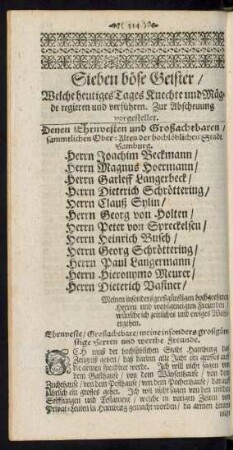 314
Sieben böse Geister /
Welche heutiges Tages Knechte und Mäg-
de regieren und verführen. Zur Abscheuung
vorgestellet.
Denen Ehrnvesten und Großachtbaren /
sämmtlichen Ober-Alten der hochlöblichen Stadt
Hamburg.
Herrn Joachim Beckmann /
Herrn Magnus Hoermann /
Herrn Garleff Langerbeck /
Herrn Dieterich Schröttering /
Herrn Clauß Sylm /
Herrn Georg von Holten /
Herrn Peter von Spreckelsen /
Herrn Heinrich Busch /
Herrn Georg Schröttering /
Herrn Paul Langermann /
Herrn Hieronymo Meurer /
Herrn Dieterich Vasmer /
Meinen insonders großgünstigen hochgeehrten
Herren und wohlgeneigten Freunden
wünsche ich zeitliches und ewiges Wohl-
ergehen.
Ehrnveste / Großachtbare / meine insonders großgün-
stige Herren und werthe Freunde.
ICH muß der hochlöblichen Stadt Hamburg das
Zeugniß geben / daß darinn alle Jahr ein grosses auf
die armen spendiret werde. Ich will nicht sagen von
dem Gasthause / von dem Wäysenhause / von dem
Zuchthause / von dem Pesthause / von dem Pockenhause / da
jährlich ein grosses gehet. Ich will nicht sagen von den
Stifftungen und Testamenten / welche in vorigen Zeiten von
Privat-Leuten in Hamburg gemacht worden / da armen